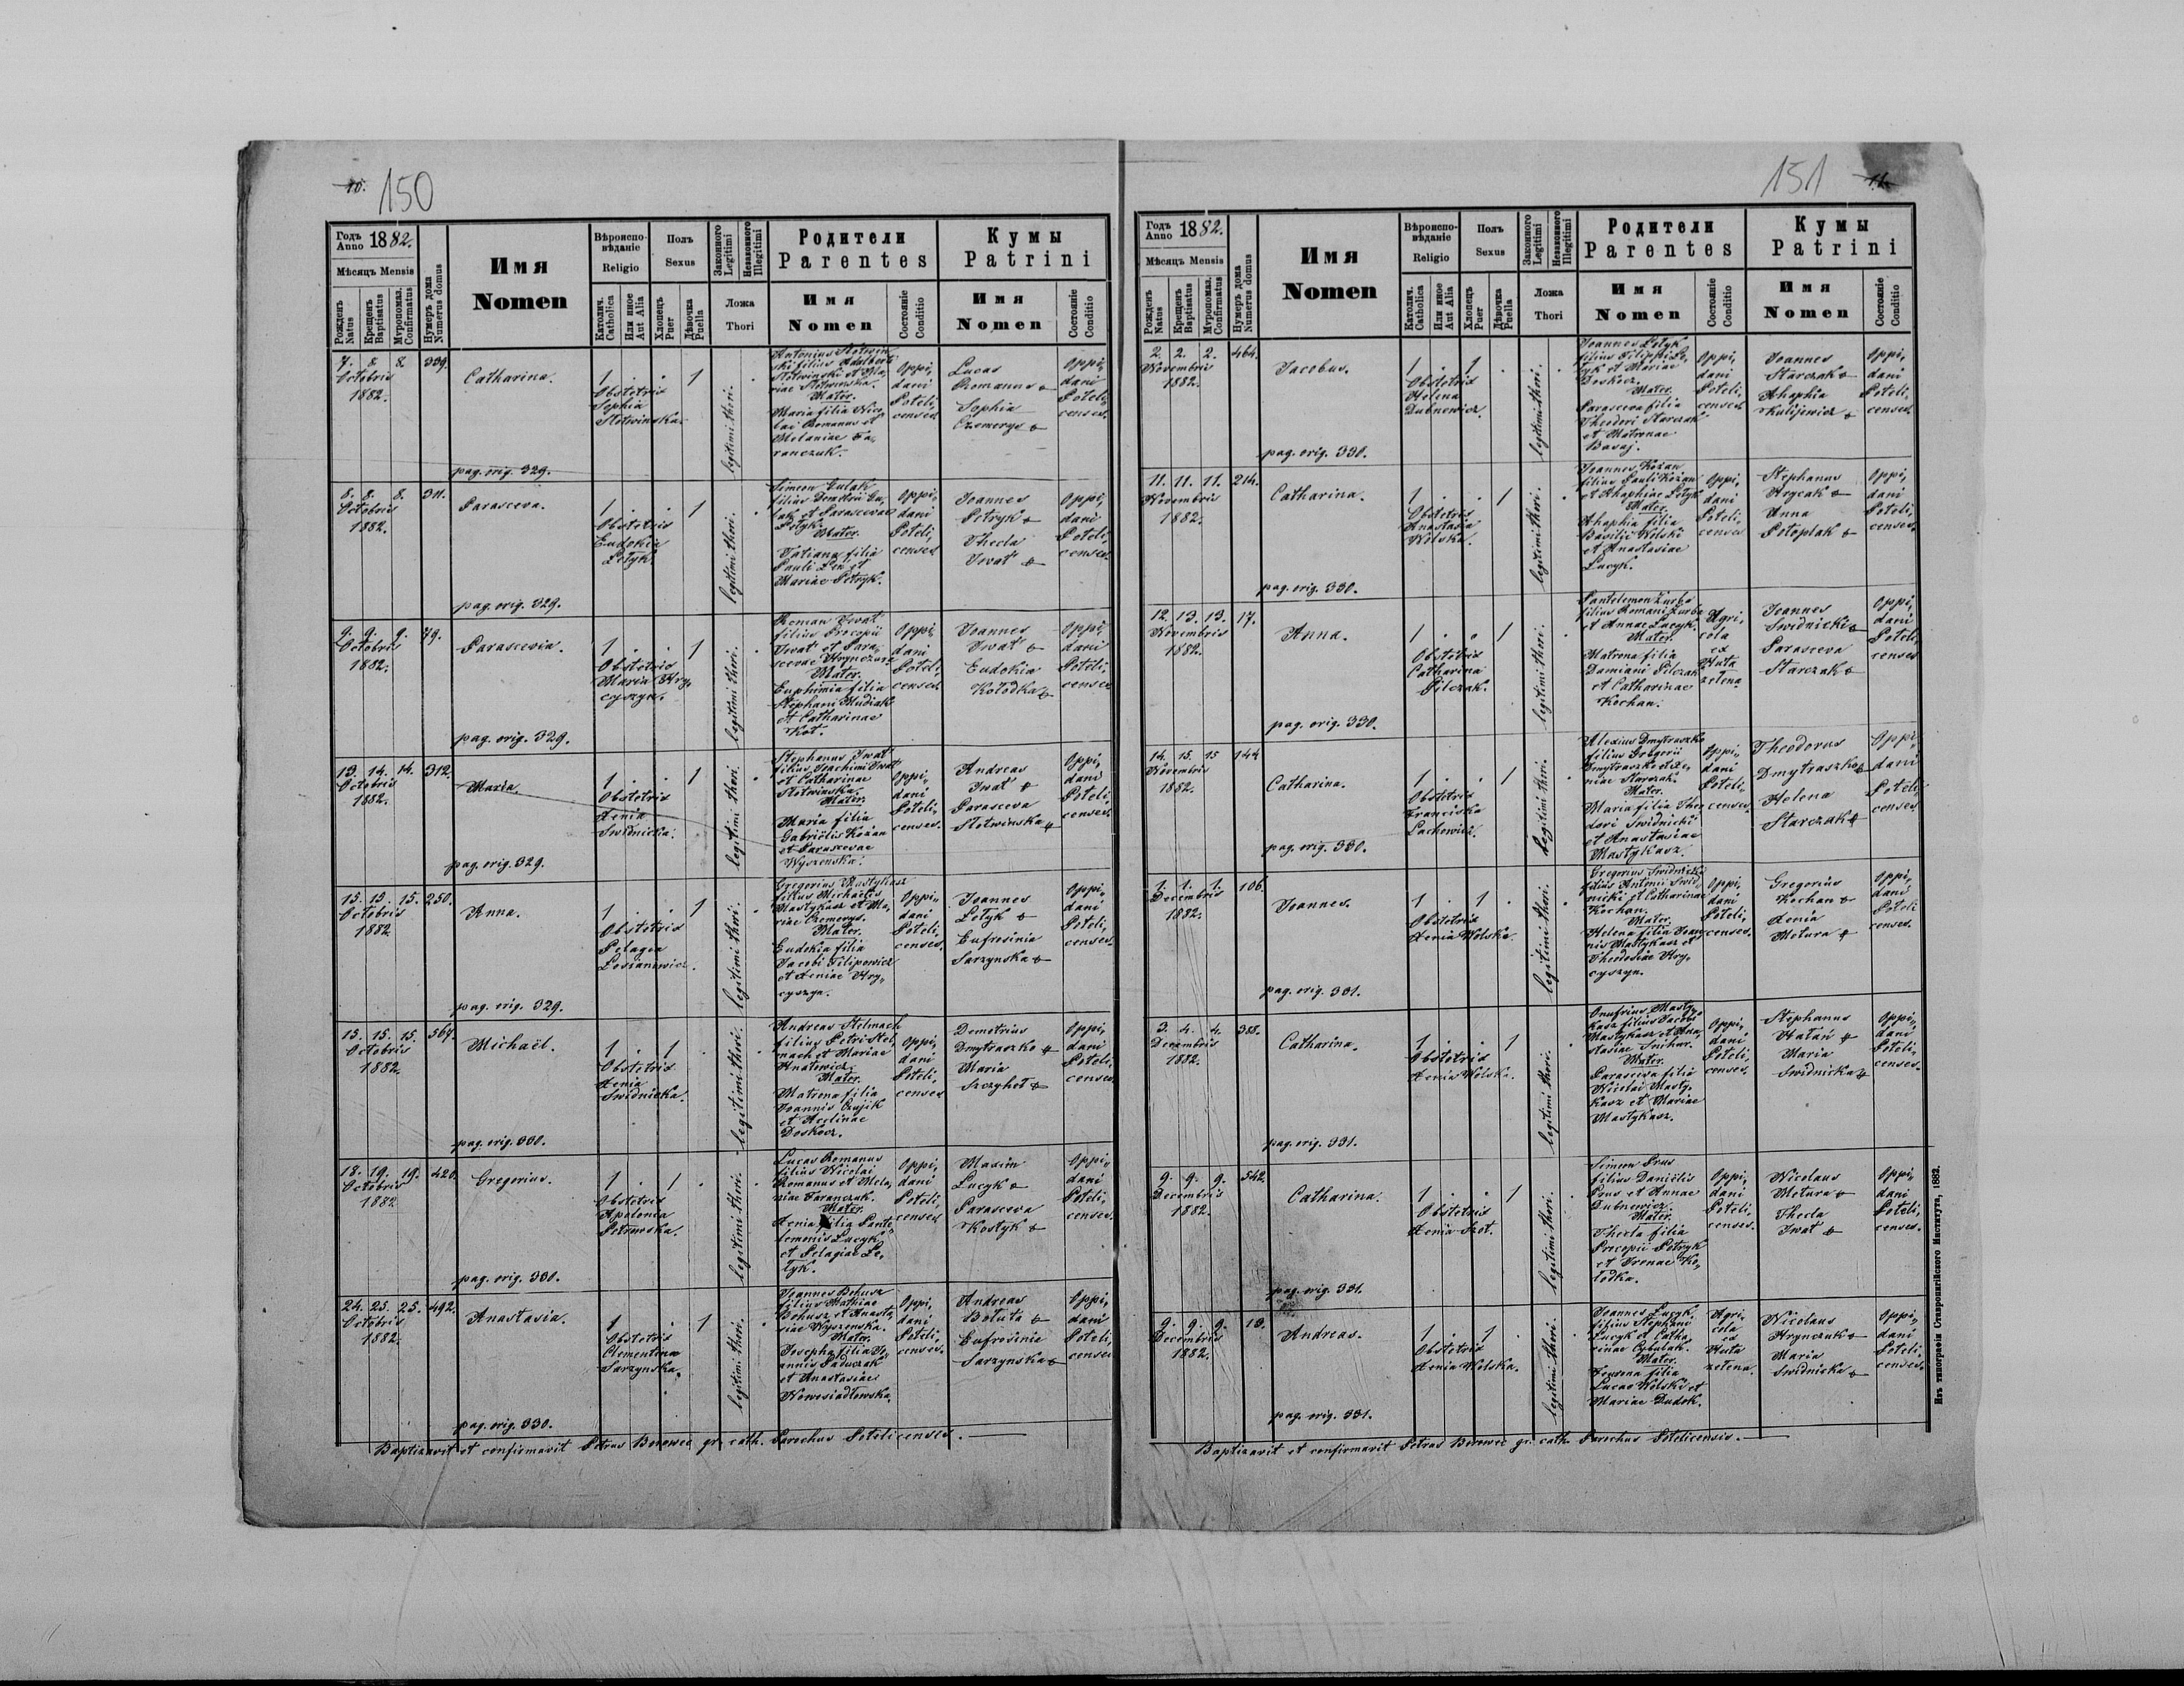 10. 150
Годъ Anno 1882.
Мѣсяцъ Mensis
Рожденъ Natus
Крещенъ Baptisatus
Мѵропомаз. Confirmatus
Нумеръ дома Numerus domus
Имя Nomen
Вѣроиспо-вѣданіе Religio
Католич. Catholica
Или иное Aut Alia
Полъ Sexus
Хлопецъ Puer
Дѣвочка Puella
Законного Legitimi
Незаконного Illegitimi
Ложа Thori
Родители Parentes
Имя Nomen
Состояніе Conditio
Кумы Patrini
Имя Nomen
Состояніе Conditio
7. 8. 8. 339.
Octobris
1882.
Catharina.
1 . . 1
Obstetrix
Sophia
Słotwinska.
legitimi thori.
Antonius Słotwin
ski filius Adalberti
Słotwinski et Ma,
riae Słotwinska.
Mater.
Maria filia Nico
lai Romanus et
Melaniae Ta,
ranczuk.
Oppi,
dani
Poteli,
censes.
Lucas
Romanus
Sophia
Czemerys
Oppi,
dani
Poteli,
censes.
pag. orig. 329.
8. 8. 8. 311.
Octobris
1882.
Parasceva.
1 . . 1
Obstetrix
Eudokia
Łotyk.
legitimi thori.
Simeon Gulak
filius Demetrii Gu,
lak et Parascevae
Mater.
Tatiana filia
Pauli Len et
Mariae Petryk.
Oppi,
dani
Poteli,
censes
Joannes
Petryk
Thecla
Iwat
Oppi,
dani
Poteli,
censes
pag. orig. 329.
9. 9. 9. 79.
Octobris
1882.
Parascevia.
1 . . 1
Obstetrix
Maria Hry,
cyszyn.
legitimi thori.
Roman Iwat
filius Procopii
Iwat et Para,
scevae Hrynczuk
Mater.
Euphimia filia
Stephani Mudrak
et Catharinae
Kot.
Oppi,
dani
Poteli,
censes.
Joannes
Iwat
Eudokia
Kołodka
Oppi,
dani
Poteli
censes
pag. orig. 329.
13. 14. 14. 312.
Octobris
1882.
Maria.
1 . . 1
Obstetrix
Xenia
Swidnicka.
legitimi thori.
Stephanus Iwat
filius Joachimi Iwat
et Catharinae
Słotwinska.
Mater.
Maria filia
Gabrielis Kożan
et Parascevae
Wyszenska.
Oppi,
dani
Poteli,
censes.
Andreas
Iwat
Parasceva
Słotwinska
Oppi,
dani
Poteli,
censes.
pag. orig. 329.
15. 15. 15. 250.
Octobris
1882
Anna.
1 . . 1
Obstetrix
Pelagea
legitimi thori.
Gregorius Mastykasz
filius Michaelis
Mastykasz et Ma,
riae Czemerys.
Mater.
Eudokia filia
Jacobi Filipowicz
et Xeniae Hry,
cyszyn.
Oppi,
dani
Poteli,
censes.
Joannes
Łotyk
Eufrosinia
Sarzynska
Oppi,
dani
Poteli,
censes.
pag. orig. 329.
15. 15. 15. 567.
Octobris
1882.
Michaël.
1 . 1 .
Obstetrix
Xenia
Swidnicka.
legitimi thori.
Andreas Stelmach
filius Petri Stel,
mach et Mariae
Hnatewicz.
Mater.
Matrona filia
Joannis Czujik
et Acelinae
Doskocz.
Oppi,
dani
Poteli,
censes
Demetrius
Dmytraszko
Maria
Szczyhoł
Oppi,
dani
Poteli,
censes.
pag. orig. 330.
18. 19. 19. 420.
Octobris
1882
Gregorius.
1 . 1 .
Obstetrix
Apolonia
legitimi thori.
Lucas Romanus
filius Nicolai
Romanus et Mela,
niae Taranczuk.
Mater.
Xenia filia Pante,
lemonis Lucyk
et Pelagiae Ło,
tyk.
Oppi,
dani
Poteli,
censes
Maxim
Lucyk
Parasceva
Kostyk
Oppi,
dani
Poteli,
censes.
pag. orig. 330.
24. 25. 25. 492.
Octobris
1882.
Anastasia.
1 . 1
Obstetrix
Clementina
Sarzynska.
legitimi thori.
Joannes Bohusz
filius Mathiae
Bohusz et Anasta,
siae Wyszenska.
Mater.
Josepha filia Jo,
annis Paduczak
et Anastasiae
Nowosiadłowska.
Oppi,
dani
Poteli,
censes.
Andreas
Bołuta
Eufrosinie
Sarzynska
Oppi,
dani
Poteli,
censes
pag. orig. 330.
Baptizavit et confirmavit Petrus Borowec gr. cath. Parochus Potelicensis.
151 11.
Годъ Anno 1882.
Мѣсяцъ Mensis
Рожденъ Natus
Крещенъ Baptisatus
Мѵропомаз. Confirmatus
Нумеръ дома Numerus domus
Имя Nomen
Вѣроиспо-вѣданіе Religio
Католич. Catholica
Или иное Aut Alia
Полъ Sexus
Хлопецъ Puer
Дѣвочка Puella
Законного Legitimi
Незаконного Illegitimi
Ложа Thori
Родители Parentes
Имя Nomen
Состояніе Conditio
Кумы Patrini
Имя Nomen
Состояніе Conditio
2. 2. 2. 464.
Novembris
1882.
Jacobus.
1 . 1 .
Obstetrix
Helena
Dubnewicz.
legitimi thori.
Joannes Łotyk
filius Filippi Ło,
tyk et Mariae
Doskocz.
Mater.
Parasceva filia
Theodori Starczak
et Matronae
Oppi,
dani
Poteli,
censes.
Joannes
Starczak
Ahaphia
Kulijewicz
Oppi,
dani
Poteli,
censes.
pag. orig. 330.
11. 11. 11. 214.
Novembris
1882.
Catharina.
1 . . 1
Obstetrix
Anastasia
Wolska.
legitimi thori.
Joannes Kożan
filius Pauli Kożan
et Ahaphiae Łotyk
Mater.
Ahaphia filia
Basilii Wolski
et Anastasiae
Lucyk.
Oppi,
dani
Poteli,
censes
Stephanus
Hrycak
Anna
Potoplak
Oppi,
dani
Poteli,
censes.
pag. orig. 330.
12. 13. 13. 17.
Novembris
1882.
Anna.
1 . . 1
Obstetrix
Catharina
Pilczak.
legitimi thori.
Pantelemon Żurba
filius Romani Żurba
et Annae Lucyk.
Mater.
Matrona filia
Damiani Pilczak
et Catharinae
Kochan.
Agri,
cola
ex
Huta
zelena
Joannes
Swidnicki
Parasceva
Starczak
Oppi,
dani
Poteli,
censes
pag. orig. 330.
14. 15. 15 144
Novembris
1882.
Catharina.
1 . . 1
Obstetrix
Franciska
Lachowicz.
legitimi thori.
Alexius Dmytraszko
filius Gregorii
Dmytraszko et Xe,
niae Starczak.
Mater.
Maria filia Theo
dori Swidnicki
et Anastasiae
Mastykasz.
Oppi,
dani
Poteli,
censes.
Theodorus
Dmytraszko
Helena
Starczak
Oppi,
dani
Poteli,
censes.
pag. orig. 330.
1. 1. 1. 106.
Decembris
1882.
Joannes.
1 . 1 .
Obstetrix
Xenia Wolska.
legitimi thori.
Gregorius Swidnicki
filius Antonii Swid,
nicki et Catharinae
Kochan.
Mater.
Helena filia Joan
nis Mastykasz et
Theodosiae Hry,
cyszyn.
Oppi,
dani
Poteli,
censes.
Gregorius
Kochan
Xenia
Motura
Oppi,
dani
Poteli
censes.
pag. orig. 331.
3. 4. 4. 388.
Decembris
1882.
Catharina.
1 . . 1
Obstetrix
Xenia Wolska.
legitimi thori.
Onufrius Masty,
kasz filius Jacobi
Mastykasz et Ana,
stasiae Snihur.
Mater.
Parasceva filia
Nicolai Masty,
kasz et Mariae
Mastykasz.
Oppi,
dani
Poteli,
censes.
Stephanus
Hałan
Maria
Swidnicka
Oppi,
dani
Poteli,
censes.
pag. orig. 331.
9. 9. 9. 542.
Decembris
1882.
Catharina.
1 . . 1
Obstetrix
Xenia Szot.
legitimi thori.
Simeon Prus
filius Danielis
Prus et Annae
Dubnewicz.
Mater.
Thecla filia
Procopii Petryk
et Irenae Ko,
łodka.
Oppi,
dani
Poteli,
censes.
Nicolaus
Motura
Thecla
Iwat
Oppi,
dani
Poteli,
censes.
pag. orig. 331.
9. 9. 9. 19.
Decembris
1882.
Andreas.
1 . 1 .
Obstetrix
Xenia Wolska.
legitimi thori.
Joannes Lucyk
filius Stephani
Lucyk et Catha,
rinae Cybulak.
Mater.
filia
Lucae Wolski et
Mariae Dudok.
Agri,
cola
ex
Huta
zelena.
Nicolaus
Hrynczuk
Maria
Swidnicka
Oppi,
dani
Poteli,
censes.
pag. orig. 331.
Baptizavit et confirmavit Petrus Borowec gr. cath. Parochus Potelicensis.
Изъ типографіи Ставропигійского Института, 1882.